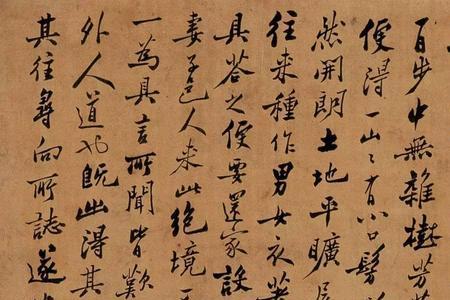 百步中無雜樹芳
便得一山〻有小口髣
然開朗土地平曠屋
往來種作男女衣著
具荅之便要還家設
妻子邑人來此絶境不
一為具言所聞皆歎
外人道也既出得其
其往尋向所誌遂